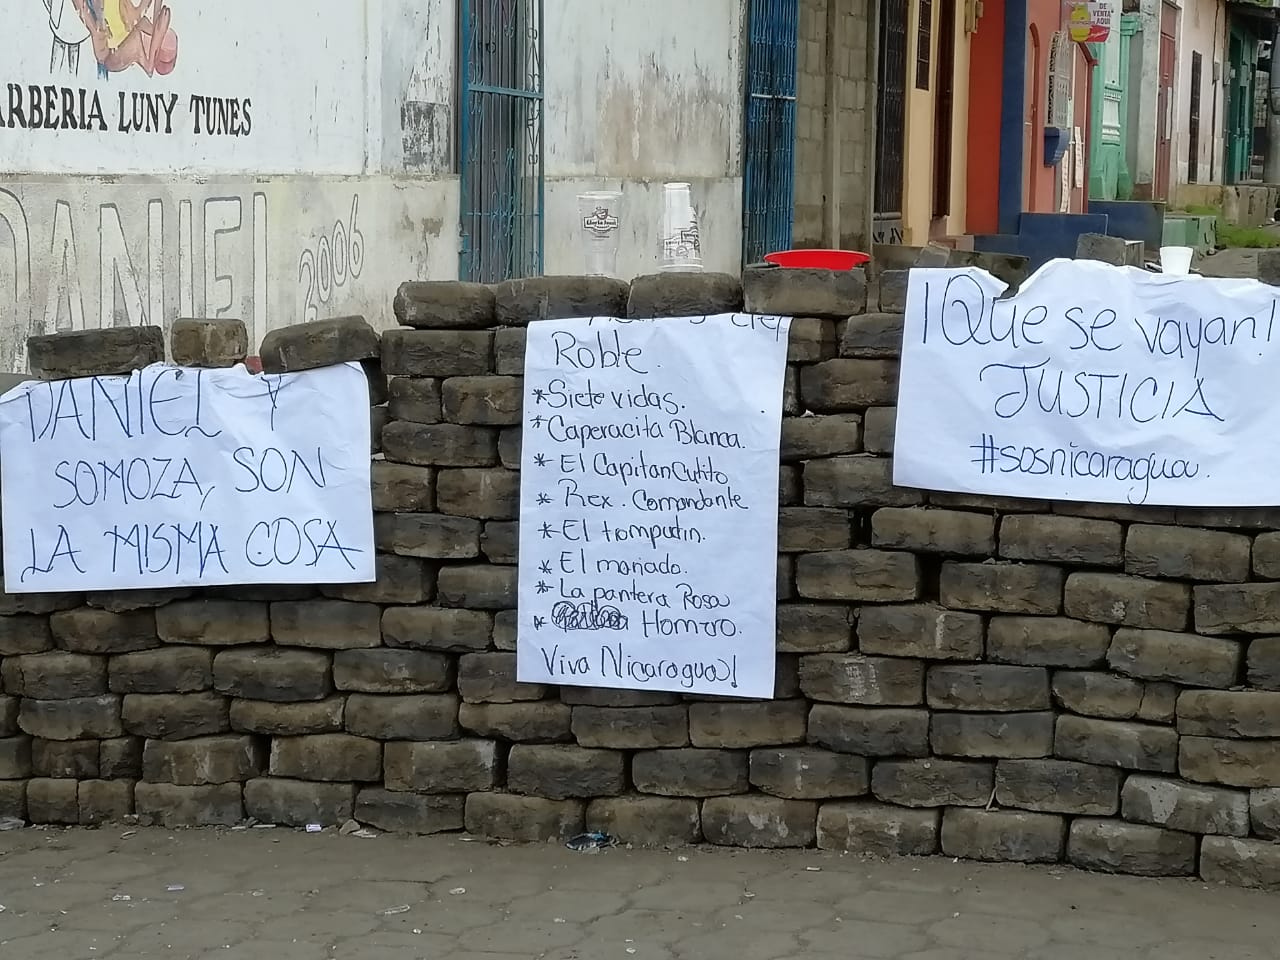 ARBERIA LUNY TUNES
DANIEL 2006
DE
VENTA
AQUI
DANIEL Y
SOMOZA, SON
LA MISMA COSA
Roble.
*Siete vidas.
*Caperacita Blanca.
*El Capitan Cutito
*Rex. Comandante
*El tomputin.
*El moñado.
*La pantera Rosa
* Homero.
Viva Nicaragua!
¡Que se vayan!
JUSTICIA
#sosnicaragua.